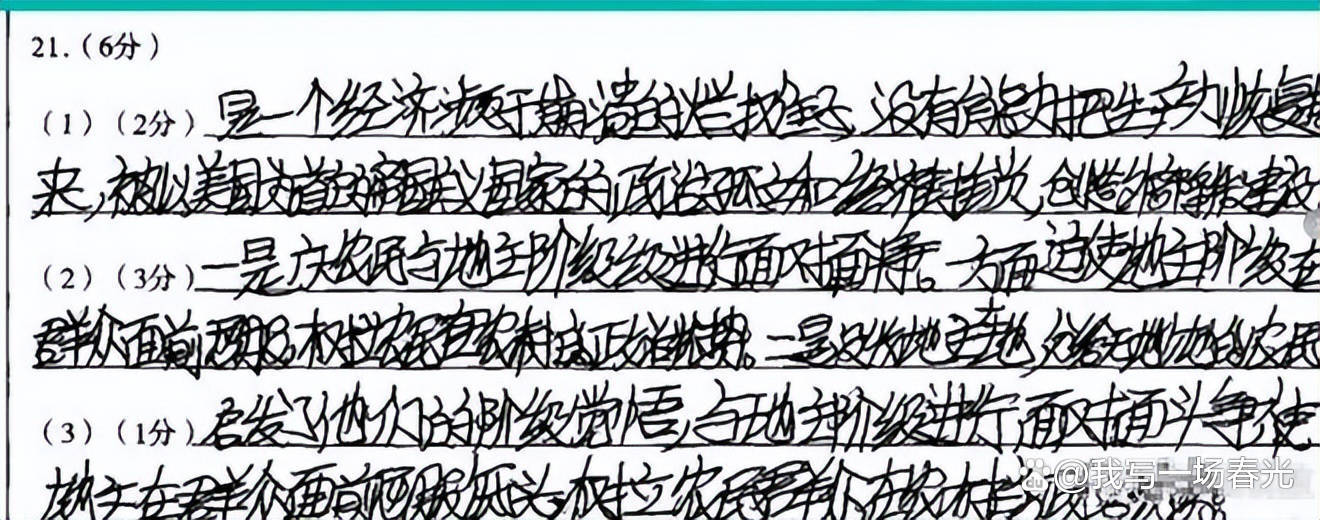 21.(6分)
(1)(2分)是一个经济濒于崩溃的烂摊子,没有能力把生产力恢复起
来,被以美国为首的帝国主义国家的政治孤立和经济封锁,创造外部和建设
(2)(3分)一是广大农民与地主阶级进行面对面斗争。一方面迫使地主阶级在
群众面前 农民在农村 政治优势。二是没收地主土地,分给无地 的农民
(3)(1分)启发了他们的阶级觉悟,与地主阶级进行面对面斗争使
地主在群众面前 低头,树立农民群众在农村
@我写一场春光